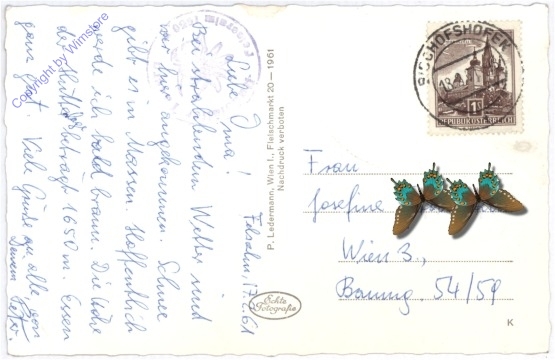 Liebe Oma!
Bei strahlendem Wetter sind
wir hier angekommen. Schnee
gibt es in Massen. Hoffentlich
werde ich bald braun. Die Höhe
der Hütte beträgt 1650 m. Essen
ganz gut. Viele Grüße an alle von
Deinem Peter.
17.2.61
P. Ledermann, Wien I., Fleischmarkt 20 — 1961
Nachdruck verboten
Echte
Fotografie
BISCHOFSHOFEN
1S
REPUBLIK ÖSTERREICH
Frau
Josefine
Wien 3.,
54/59
K
Copyright by Wimstore